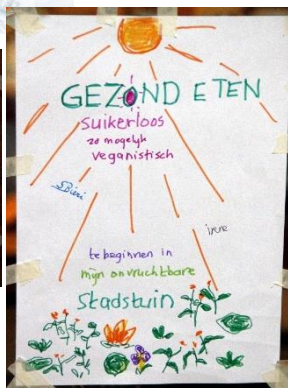 GEZOND ETEN
suikerloos
zo mogelijk
veganistisch
irene
te beginnen in
mijn onvruchtbare
Stadstuin